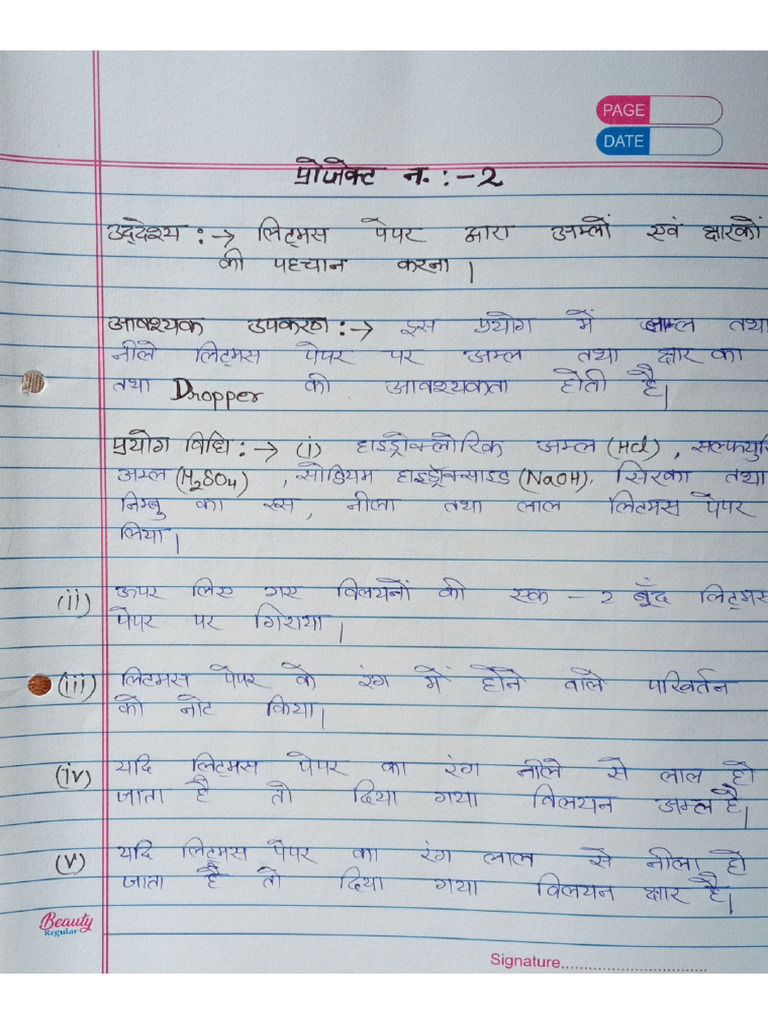 PAGE
DATE
प्रोजेक्ट न. :- 2
उद्देश्य :→ लिट्मस पेपर द्वारा अम्लों एवं क्षारकों
की पहचान करना।
आवश्यक उपकरण :→ इस प्रयोग में अम्ल तथा
नीले लिट्मस पेपर पर अम्ल तथा क्षार का
तथा Dropper की आवश्यकता होती है।
प्रयोग विधि :→ (i) हाइड्रोक्लोरिक अम्ल (HCl), सल्फयुरि
अम्ल (H₂SO₄), सोडियम हाइड्रॅाक्साइड (NaOH), सिरका तथा
निम्बु का रस, नीला तथा लाल लिटमस पेपर
लिया।
(ii) ऊपर लिए गए विलयनों की एक - 2 बूँद लिट्मस
पेपर पर गिराया।
(iii) लिटमस पेपर के रंग में होने वाले परिवर्तन
को नोट किया।
(iv) यदि लिट्मस पेपर का रंग नीले से लाल हो
जाता है तो दिया गया विलयन अम्ल है।
(v) यदि लिट्मस पेपर का रंग लाल से नीला हो
जाता है तो दिया गया विलयन क्षार है।
Beauty
Regular
Signature..............................